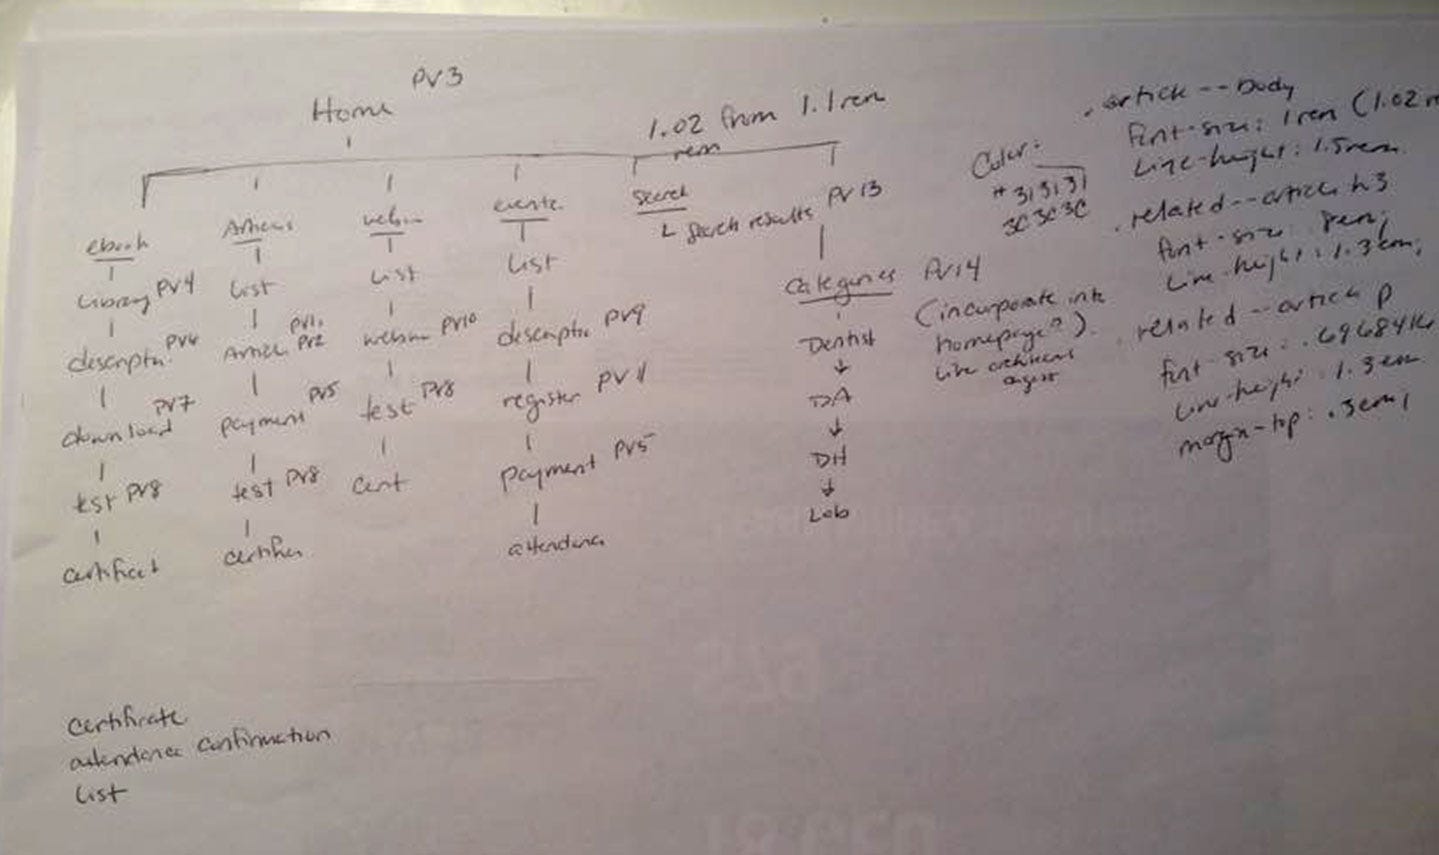 PV3
Home
1.02 from 1.1 rem
rem
ebook
Library PV4
PV6
download PV7
test PV8
Articles
List
PV11
Article PV2
payment PV5
test PV8
List
PV10
test PV8
Cert
events
List
PV9
register
payment PV5
Search
Search results PV13
Categories PV14
Dentist
DA
DH
Lab
(incorporate into
homepage?).
Like architectural
digest
Color:
#313131
3C3C3C
.article--body
font-size: 1rem (1.02
Line-height: 1.5rem.
.related--article h3
font-size: .8em;
Line-height: 1.3em;
.related--article p
font-size:
Line-height: 1.3em
margin-top: .3em;
certificate
attendance confirmation
List